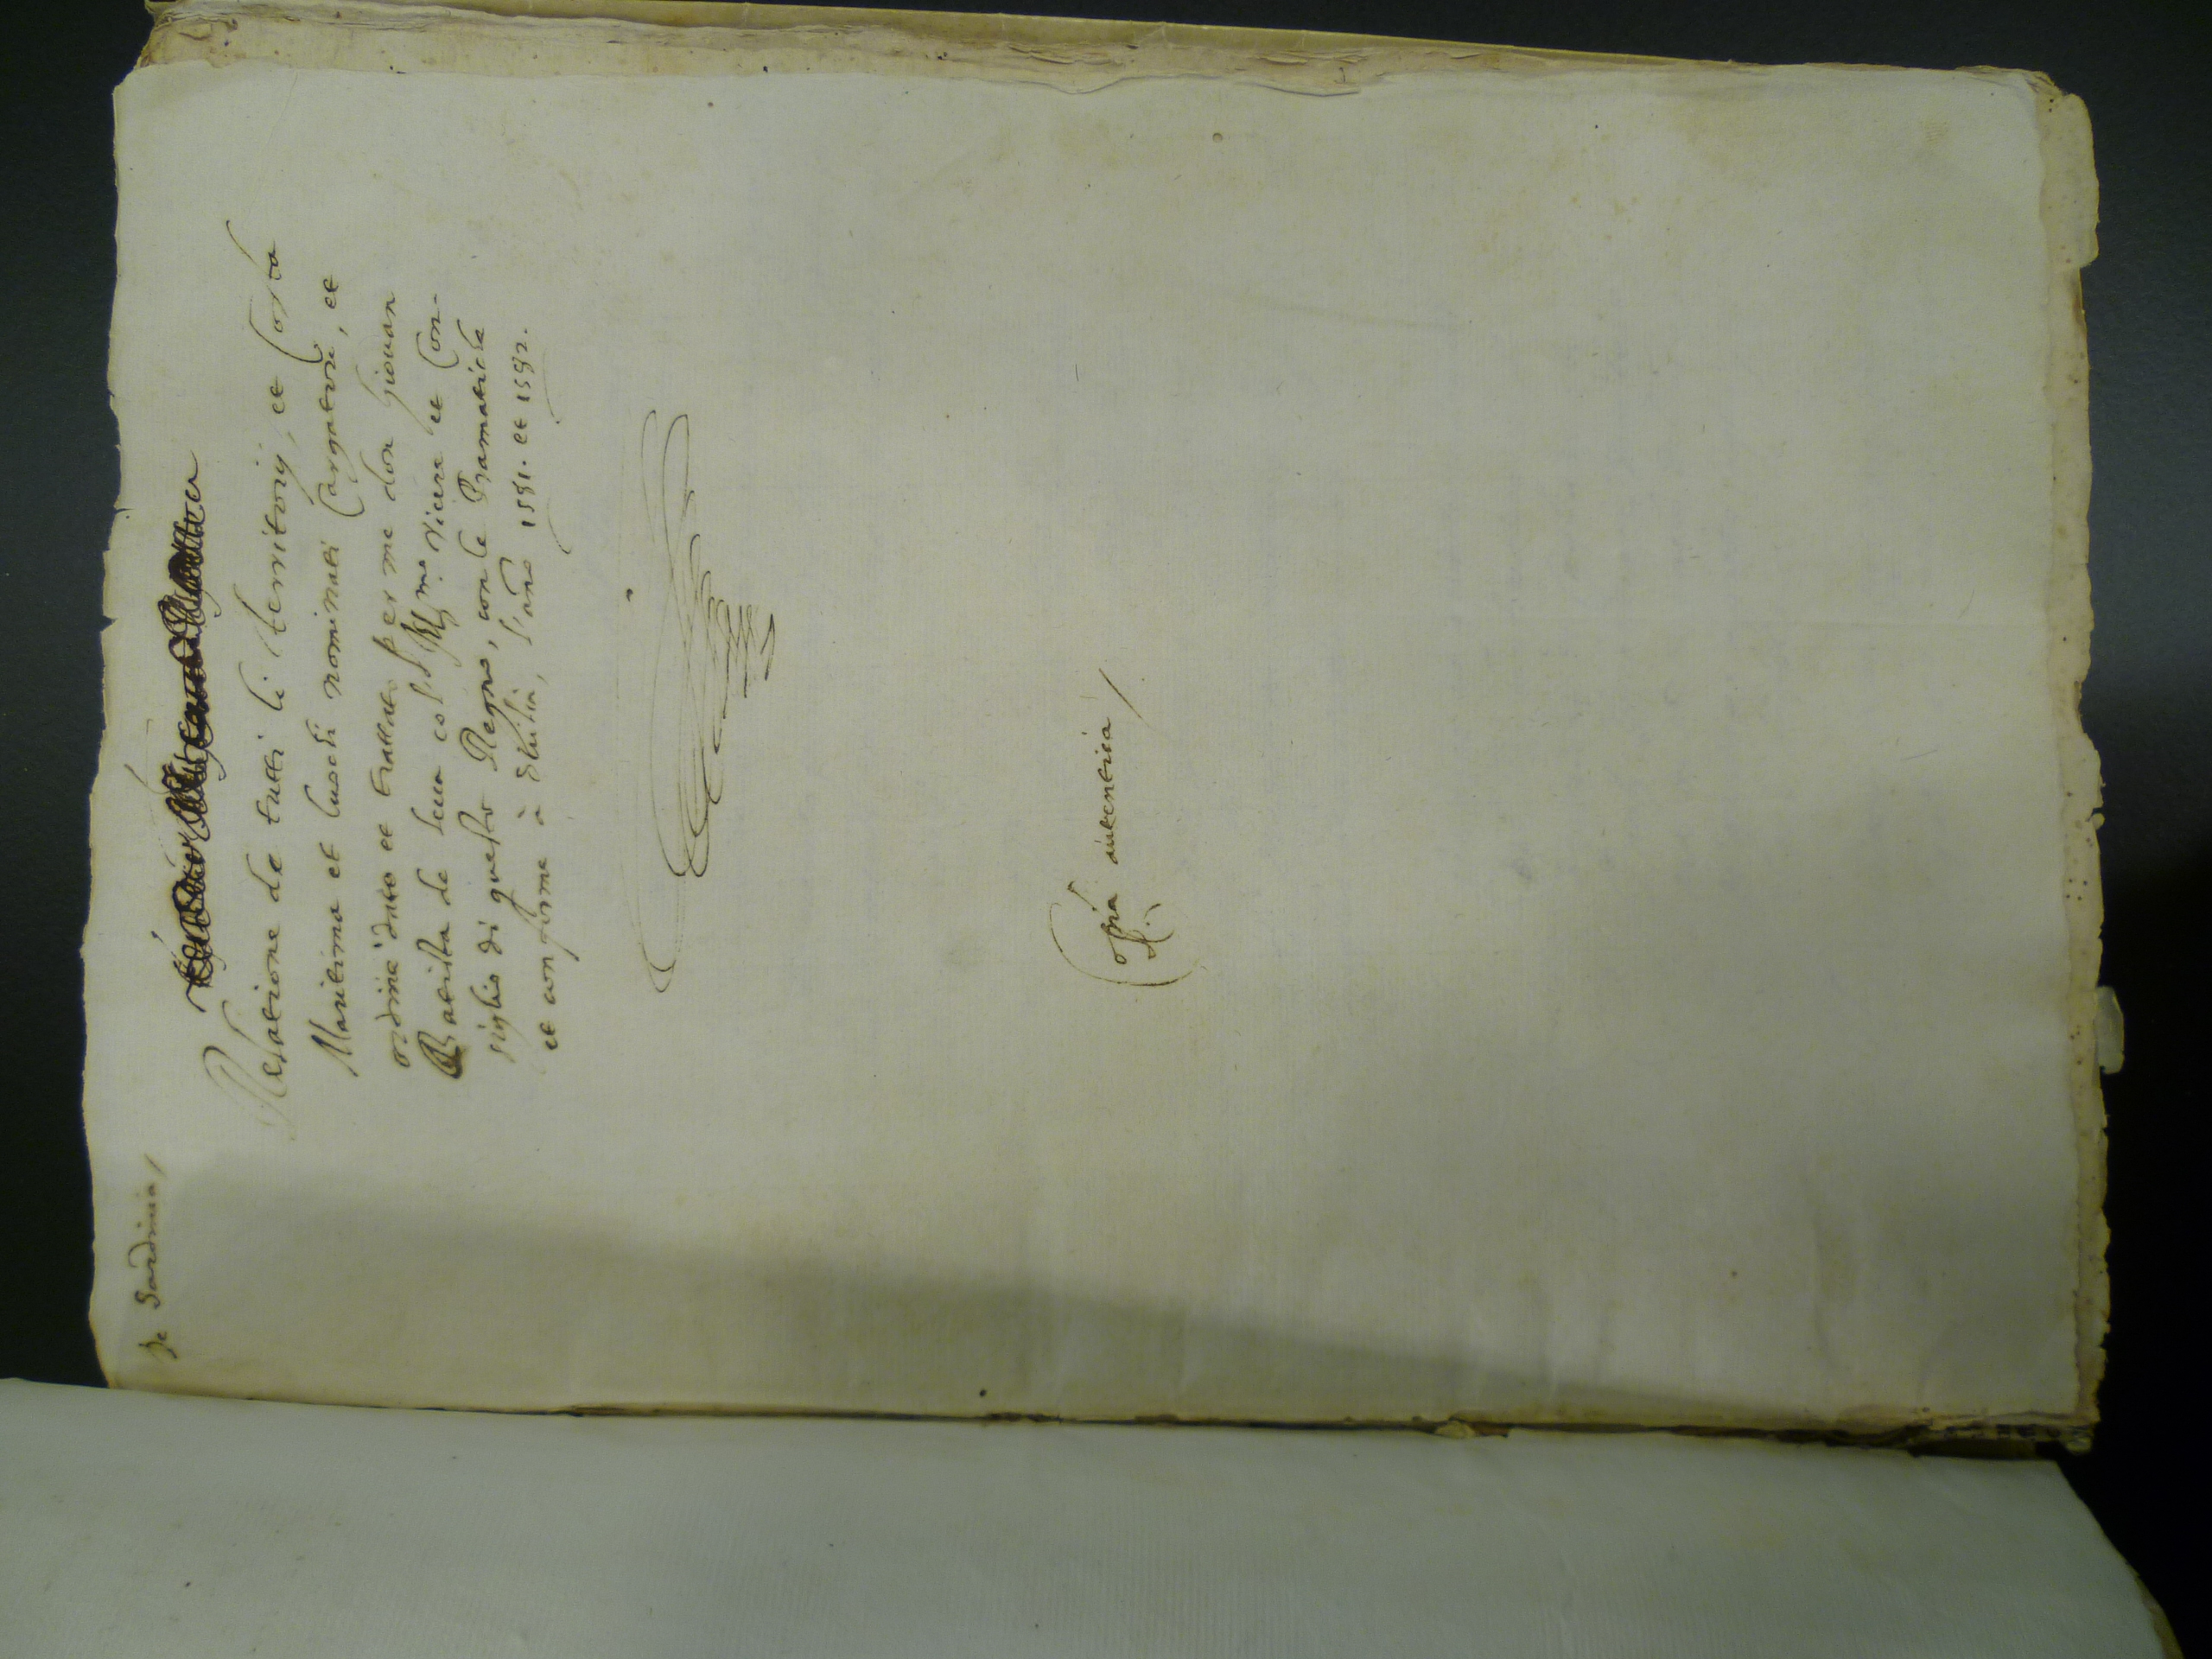 de Sardinia /
Relatione de tutti li territorij, et Costa
Maritima et luochi nominati Cargatori, et
ordine dato et trattato per me don Giouan
Batista de Seua col S. Ill.mo Vicere et Con-
siglio di questo Regno, con le Pramatiche
et conforme à quilli, l'ano 1581. et 1582.
Copia autentica /